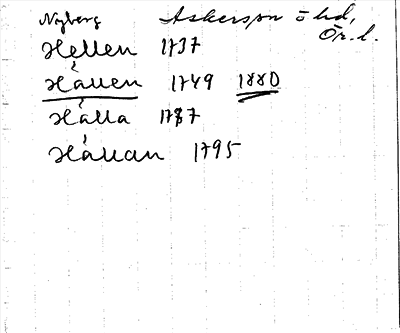 Nyberg Askersunds hd,
Ör. l.
Hellen 1737
Hållen 1749 1880
Hålla 1787
Hållan 1795